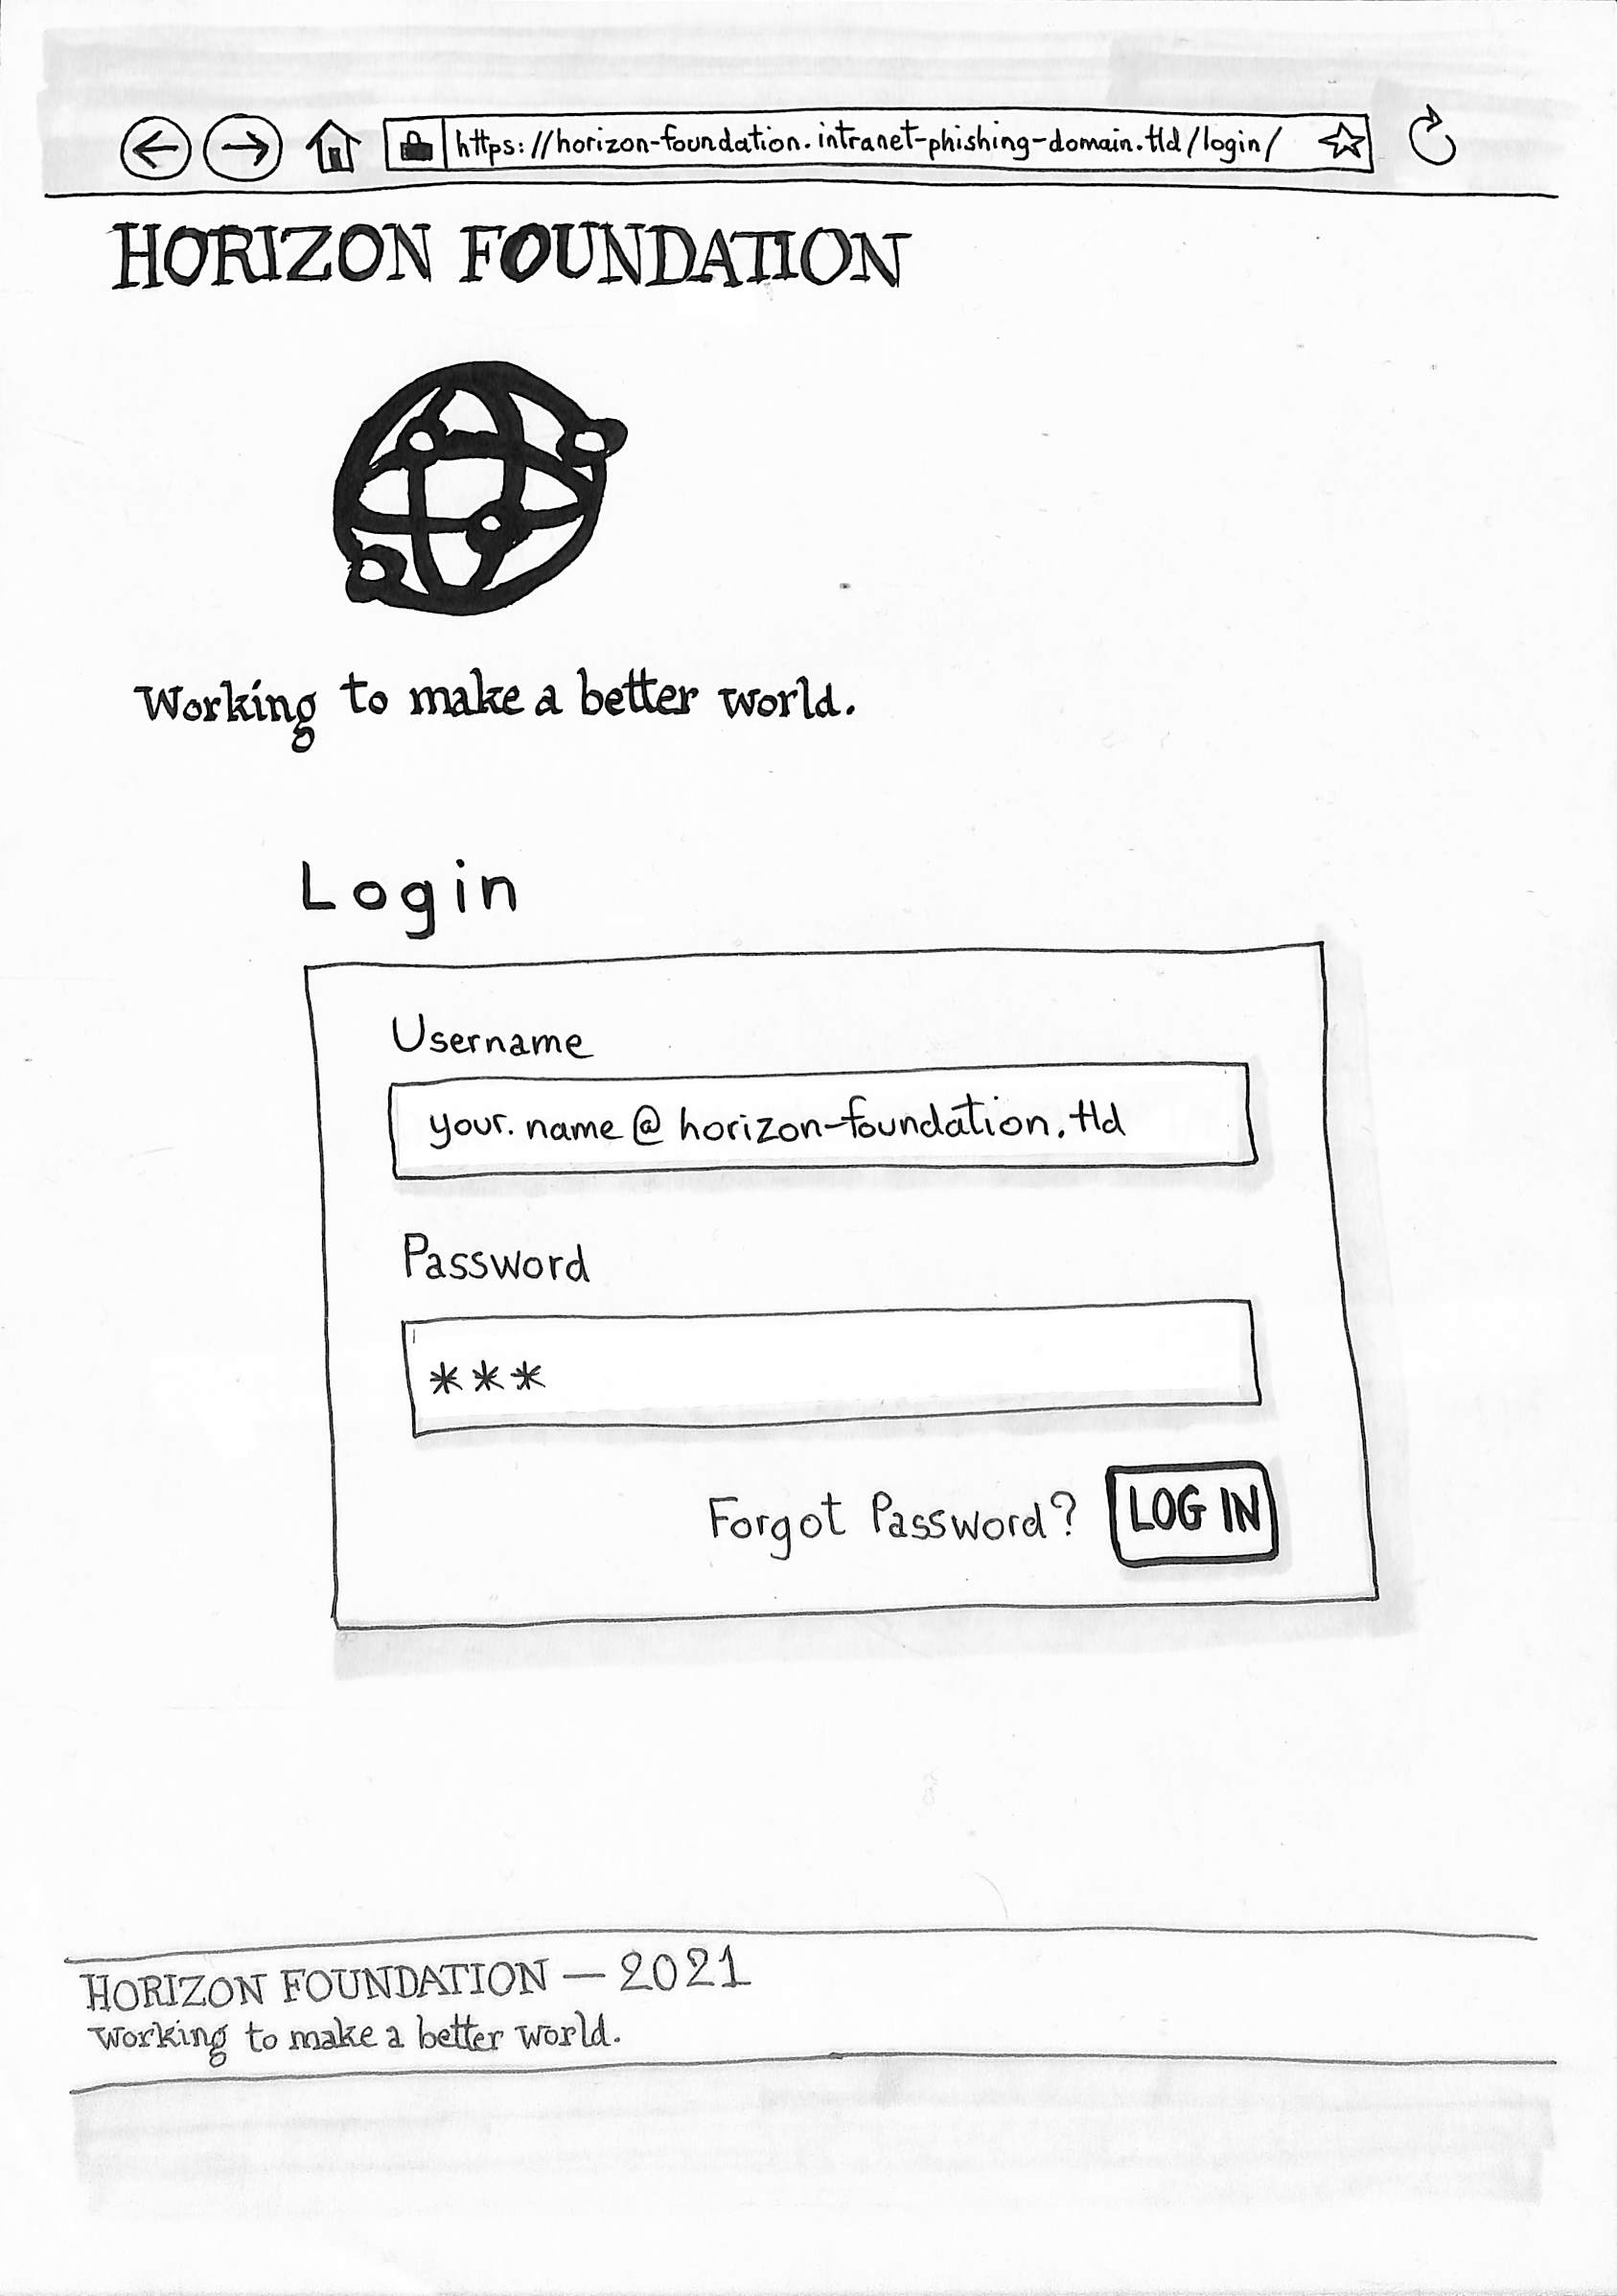 https://horizon-foundation.intranet-phishing-domain.tld/login/
HORIZON FOUNDATION
Working to make a better world.
Login
Username
your.name@horizon-foundation.tld
Password
***
Forgot Password? LOG IN
HORIZON FOUNDATION — 2021
Working to make a better world.